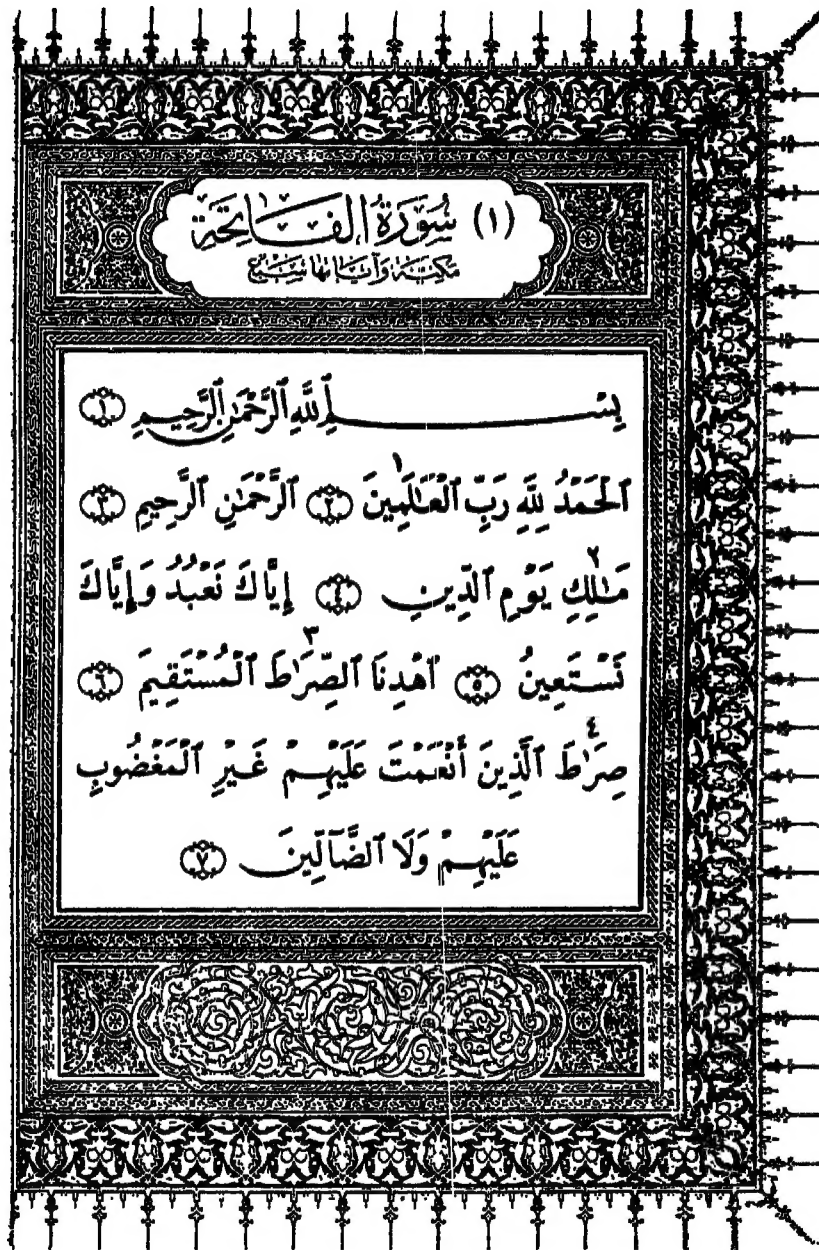 (١) سُورَةُ الفَاتِحَة
مَكِيَّة وَآيَاتها سَبْع
بِسْمِ ٱللَّهِ ٱلرَّحْمَٰنِ ٱلرَّحِيمِ ١
ٱلْحَمْدُ لِلَّهِ رَبِّ ٱلْعَٰلَمِينَ ١ ٢ ٱلرَّحْمَٰنِ ٱلرَّحِيمِ ٣
مَٰلِكِ ٢ يَوْمِ ٱلدِّينِ ٤ إِيَّاكَ نَعْبُدُ وَإِيَّاكَ
نَسْتَعِينُ ٥ ٱهْدِنَا ٱلصِّرَٰطَ ٣ ٱلْمُسْتَقِيمَ ٦
صِرَٰطَ ٤ ٱلَّذِينَ أَنْعَمْتَ عَلَيْهِمْ غَيْرِ ٱلْمَغْضُوبِ
عَلَيْهِمْ وَلَا ٱلضَّآلِّينَ ٧